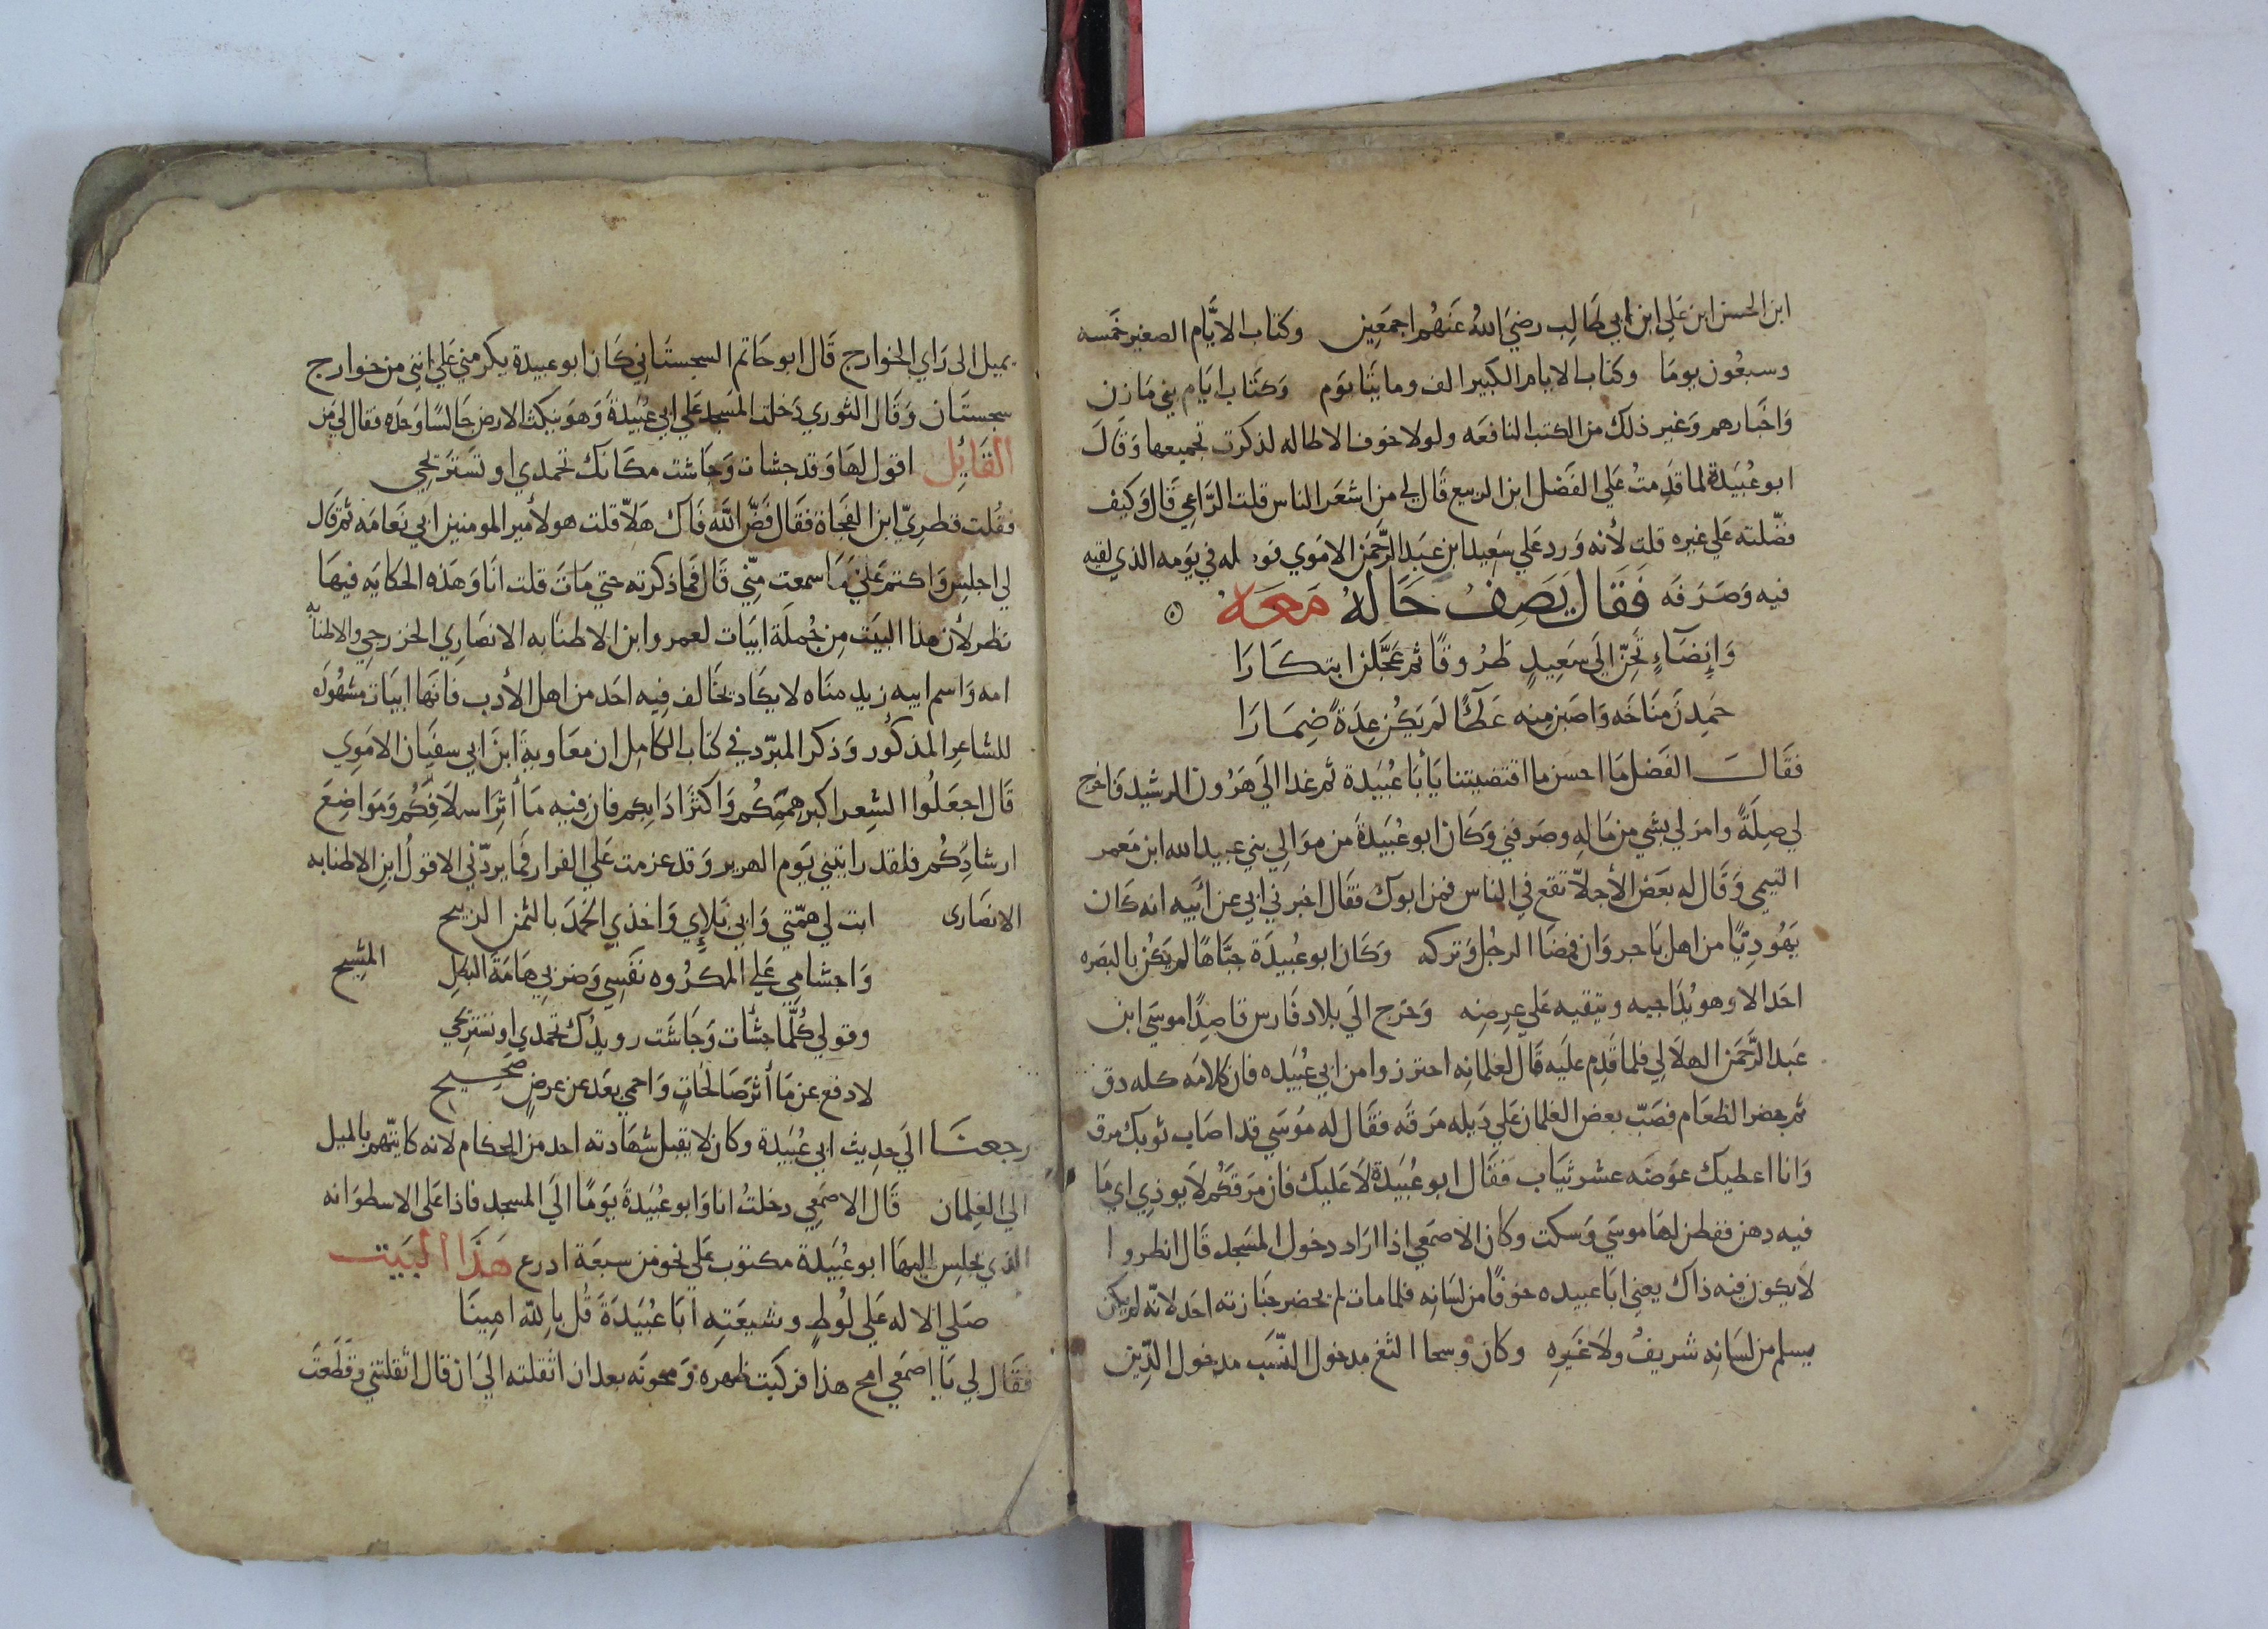 ابن الحسن ابن علي ابن ابي طالب رضي الله عنهم اجمعين وكتاب الايّام الصغير خمسه
وسبعون يوما وكتاب الايام الكبير الف ومايتا يوم وكتاب ايام بني مازن
واخبارهم وغير ذلك من الكتب النافعه ولولا خوف الاطاله لذكرت جميعها وقال
ابو عبيدة لما قدمت علي الفضل ابن الربيع قال لي من اشعر الناس قلت الرّاعي قال وكيف
فضّلته علي غيره قلت لأنه ورد علي سعيد ابن عبد الرّحمن الاموي فوصله في يومه الذي لقيه
فيه وصرفه فقال يصف حاله معه
وإنضآءٍ تحنّ الي سعيدٍ طروقًا ثم عجّلن ابتكارا
حمدن مناخه واصبن منه عطآءً لم يكن عدةً ضمارا
فقال الفضل ما احسن ما اقتضيتنا يأبا عبيدة ثم غدا الي هرون الرشيد فاخرج
لي صلةً وامر لي بشي من ماله وصرفني وكان ابو عبيدة من موالي بني عبيد الله ابن معمر
التيمي وقال له بعض الأجلّا تقع في الناس فمن ابوك فقال اخبرني ابي عن ابيه انه كان
يهوديًّا من اهل باجروان فمضا الرجل وتركه وكان ابو عبيدة جبّاهًا لم يكن بالبصره
احد الا وهو يداجيه ويتقيه علي عرضه وخرج الي بلاد فارس قاصدًا موسي ابن
عبد الرّحمن الهلالي فلما قدم عليه قال لغلمانه احترزوا من ابي عبيده فان كلامه كله دق
ثم حضر الطعام فصبّ بعض الغلمان علي ذيله مرقه فقال له موسي قد اصاب ثوبك مرق
وانا اعطيك عوضه عشر ثياب فقال ابو عبيدة لا عليك فان مرقكم لا يوذي اي ما
فيه دهن ففطن لها موسي وسكت وكان الاصمعي اذا اراد دخول المسجد قال انظروا
لا يكون فيه ذاك يعني ابا عبيده خوفًا من لسانه فلما مات لم يحضر جنازته احد لانّه لم يكن
يسلم من لسانه شريفٌ ولا غيره وكان وسخا الثغ مدخول النّسب مدخول الدّين
يميل الي راي الخوارج قال ابو حاتم السجستاني كان ابو عبيدة يكرمني علي انني من خوارج
سجستان وقال الثوري دخلت المسجد علي ابي عبيدة وهو ينكت الارض جالسًا وحده فقال لي من
القايل اقول لها وقد جشات وجاشت مكانك تحمدي او تستريحي
فقلت قطريّ ابن الفجاة فقال فضّ الله فاك هلّا قلت هو لأمير المومنين ابي نعامه ثم قال
لي اجلس واكتم علي ما سمعت منّي قال فما ذكرته حتي مات قلت انا وهذه الحكايه فيها
نظر لأن هذا البيت من جملة ابيات لعمرو ابن الاطنابه الانصاري الخزرجي والاطنابه
امه واسم ابيه زيد مناه لا يكاد يخالف فيه احد من اهل الأدب فانها ابيات مشهوره
للشاعر المذكور وذكر المبرّد في كتاب الكامل ان معاوية ابن ابي سفيان الاموي
قال اجعلوا الشعر اكبر همّكم واكثر ادابكم فان فيه مأثر اسلافكم ومواضع
ارشادكم فلقد رايتني يوم الهرير وقد عزمت علي الفرار فما يردّني الا قول ابن الاطنابه
الانصاري ابت لي همّتي وابي بلإي واخذي الحمد بالثمن الربيح
واجشامي علي المكروه نفسي وضربي هامة البطل المشيح
وقولي كلّما جشأت وجاشت رويدك تحمدي او تستريحي
لادفع عن مأثر صالحاتٍ واحمي بعد عن عرضٍ صحيح
رجعنا الي حديث ابي عبيدة وكان لا يقبل شهادته احد من الحكام لانه كان يتّهم بالميل
الي الغلمان قال الاصمعي دخلت انا وابو عبيدة يومًا الي المسجد فاذا علي الاسطوانه
الذي يجلس اليها ابو عبيدة مكتوب علي نحو من سبعة ادرع هذا البيت
صلي الاله علي لوطٍ وشيعته أبا عبيدة قل باللّه امينا
فقال لي يا اصمعي امح هذا فركبت ظهره ومحوته بعد ان اثقلته الي ان قال اثقلتني وقطعت